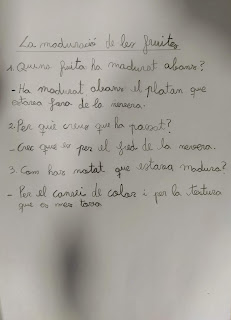 La maduració de les fruites
1. Quina fruita ha madurat abans?
- Ha madurat abans el platan que
estava fora de la nevera.
2. Per què creus que ha passat?
- Crec que es per el fred de la nevera.
3. Com has notat que estava madura?
- Per el canvi de color i per la textura
que es mes tova